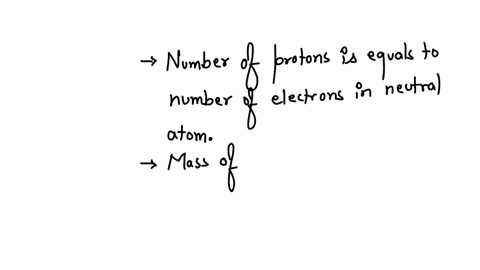 → Number of protons is equals to
number of electrons in neutral
atom.
→ Mass of